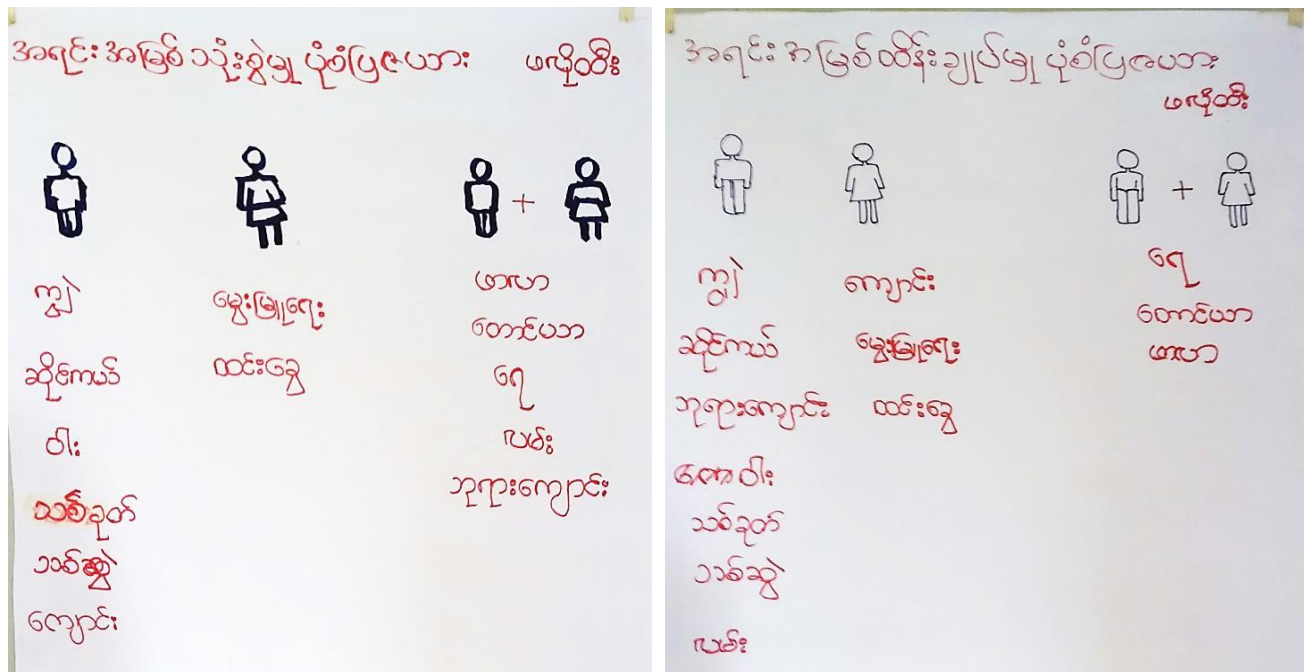 အရင်းအမြစ် သုံးစွဲမှု ပုံစံပြဇယား ဖလိုထီး
ကျွဲ
ဆိုင်ကယ်
ဝါး
သစ်ခုတ်
သစ်ဆွဲ
ကျောင်း
မွေးမြူရေး
ထင်းခွေ
ဖာဟာ
တောင်ယာ
ရေ
လမ်း
ဘုရားကျောင်း
အရင်းအမြစ် ထိန်းချုပ်မှု ပုံစံပြဇယား
ဖလိုထီး
+
ကျွဲ
ဆိုင်ကယ်
ဘုရားကျောင်း
ဝါး
သစ်ခုတ်
သစ်ဆွဲ
လမ်း
ကျောင်း
မွေးမြူရေး
ထင်းခွေ
+
ရေ
တောင်ယာ